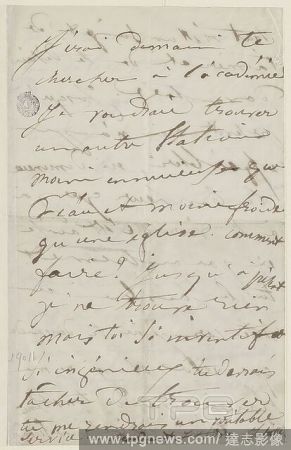 J'irai demain te
chercher à l'académie
Je voudrais trouver
un autre
moins ennuyeux que
et moins froide
qu'une église. comment
faire? jusqu'à présent
je ne trouve rien
mais toi si inventif
si ingénieux tu devrais
tacher de trouver
tu me rendrais un véritable
service
1901
TPG
www.tpgnews.com 達志影像